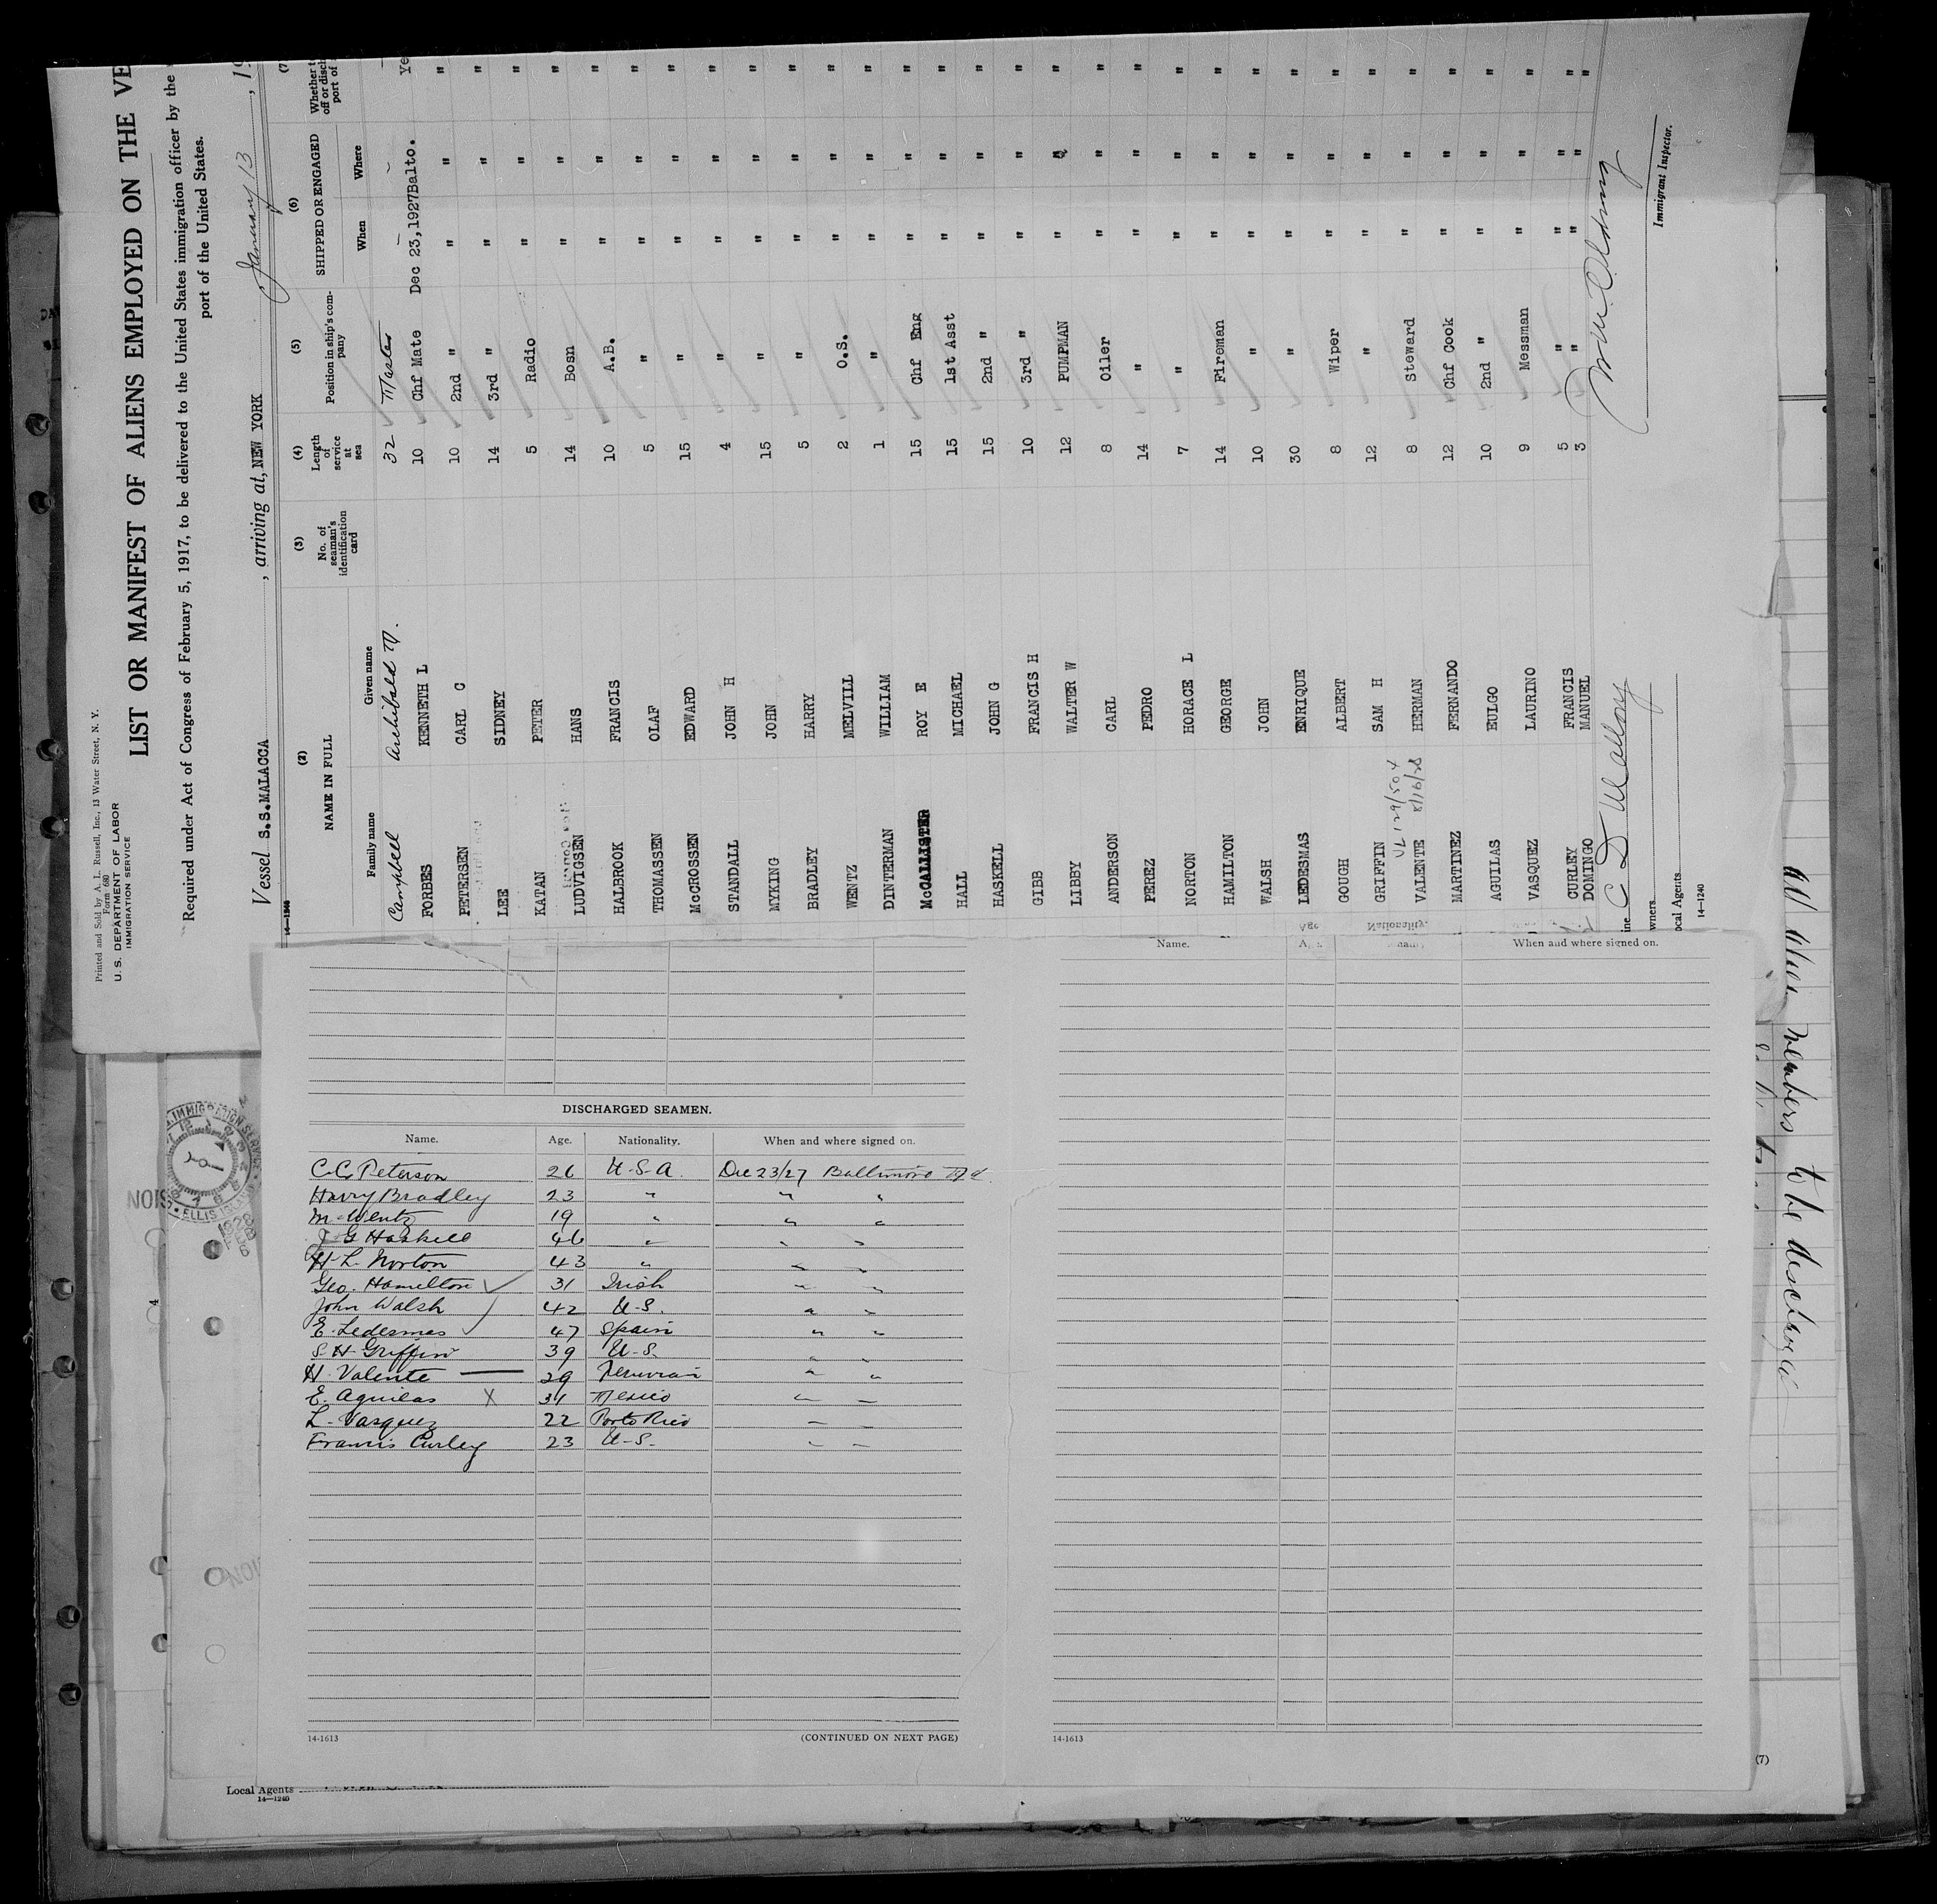 Printed and Sold by A. L. Russell, Inc., 13 Water Street, N. Y.
Form 680
U. S. DEPARTMENT OF LABOR
IMMIGRATION SERVICE
LIST OR MANIFEST OF ALIENS EMPLOYED ON THE VE
Required under Act of Congress of February 5, 1917, to be delivered to the United States immigration officer by the
port of the United States.
Vessel S.S.MALACCA , arriving at, NEW YORK January 13 , 19
(2) (3) (4) (5) (6) (7)
NAME IN FULL No. of seaman's identification card Length of service at sea Position in ship's company SHIPPED OR ENGAGED Whether t off or disch port of
Family name Given name When Where
Campbell Archibald M. 32 Master
FORBES KENNETH L 10 Chf Mate Dec 23,1927 Balto. Ye
PETERSEN CARL C 10 2nd " " " "
LEE SIDNEY 14 3rd " " " "
KATAN PETER 5 Radio " " "
LUDVIGSEN HANS 14 Bosn " " "
HALBROOK FRANCIS 10 A.B. " " "
THOMASSEN OLAF 5 " " " "
McCROSSEN EDWARD 15 " " " "
STANDALL JOHN H 4 " " " "
MYKING JOHN 15 " " " "
BRADLEY HARRY 5 " " " "
WENTZ MELVILL 2 O.S. " " "
DINTERMAN WILLIAM 1 " " " "
McCALLISTER ROY E 15 Chf Eng " " "
HALL MICHAEL 15 1st Asst " " "
HASKELL JOHN G 15 2nd " " " "
GIBB FRANCIS H 10 3rd " " " "
LIBBY WALTER W 12 PUMPMAN " " "
ANDERSON CARL 8 Oiler " " "
PEREZ PEDRO 14 " " " "
NORTON HORACE L 7 " " " "
HAMILTON GEORGE 14 Fireman " " "
WALSH JOHN 10 " " " "
LEDESMAS ENRIQUE 30 " " " "
GOUGH ALBERT 8 Wiper " " "
GRIFFIN SAM H 12 " " " "
VALENTE HERMAN 8 Steward " " "
MARTINEZ FERNANDO 12 Chf Cook " " "
AGUILAS EULGO 10 2nd " " " "
VASQUEZ LAURINO 9 Messman " " "
CURLEY FRANCIS 5 " " " "
DOMINGO MANUEL 3 " " " "
ine C D Mallory
wners
ocal Agents
14—1240
Immigrant Inspector.
Name. Age Nationality. When and where signed on.
DISCHARGED SEAMEN.
Name. Age. Nationality. When and where signed on.
C.C. Peterson 26 U.S.A. Dec 23/27 Baltimore Md.
Harry Bradley 23 " " "
M Wentz 19 " " "
J G Haskell 46 " " "
H. L. Norton 43 " " "
Geo. Hamilton ✓ 31 Irish " "
John Walsh 42 U.S. " "
E. Ledesmas ✓ 47 Spain " "
S. H Griffin 39 U.S. " "
H. Valente — 29 Peruvian " "
E. Aguilas X 31 Mexico " "
L. Vasquez 22 Porto Rico " "
Francis Curley 23 U.S. " "
14-1613 (CONTINUED ON NEXT PAGE) 14-1613
(7)
Local Agents
14—1240
All other members to be discharged